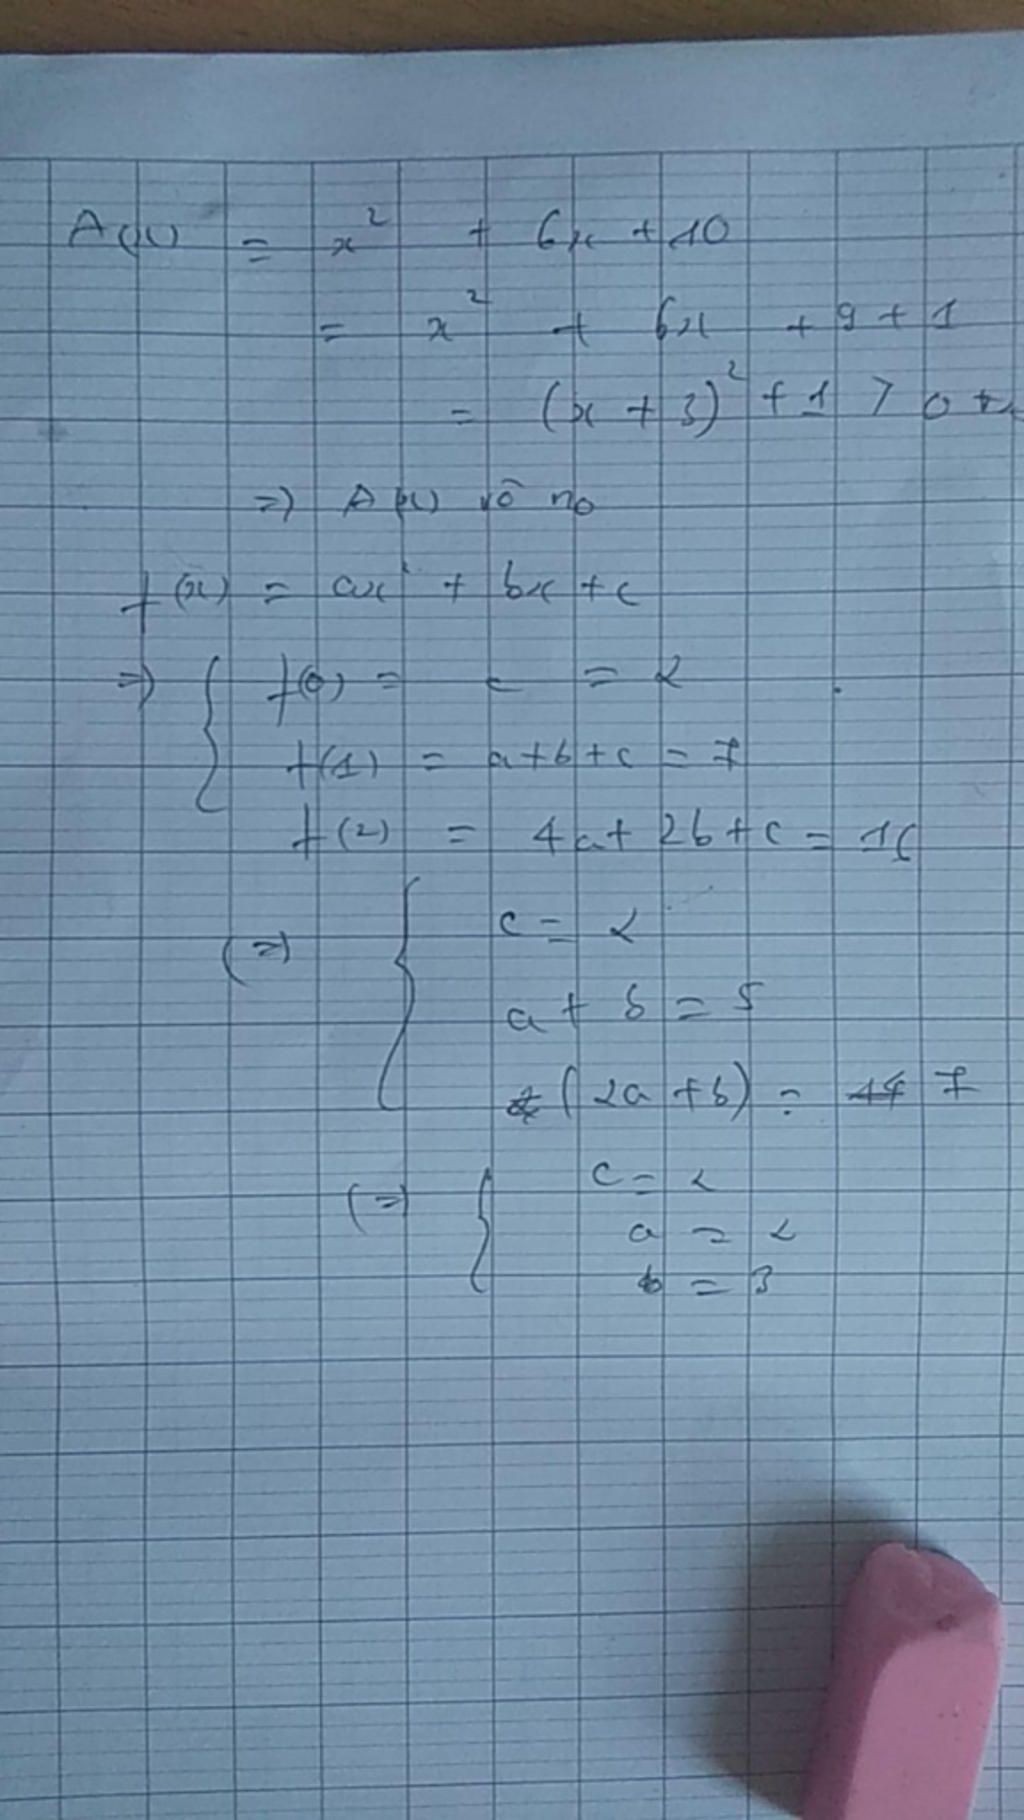 A(x) = x² + 6x + 10
= x² + 6x + 9 + 1
= (x + 3)² + 1 > 0
=> A(x) vô no
f(x) = ax² + bx + c
=> { f(0) = c = 2
f(1) = a + b + c = 7
f(2) = 4a + 2b + c = 16
(=) { c = 2
a + b = 5
(2a + b) = 7
(=) { c = 2
a = 2
b = 3